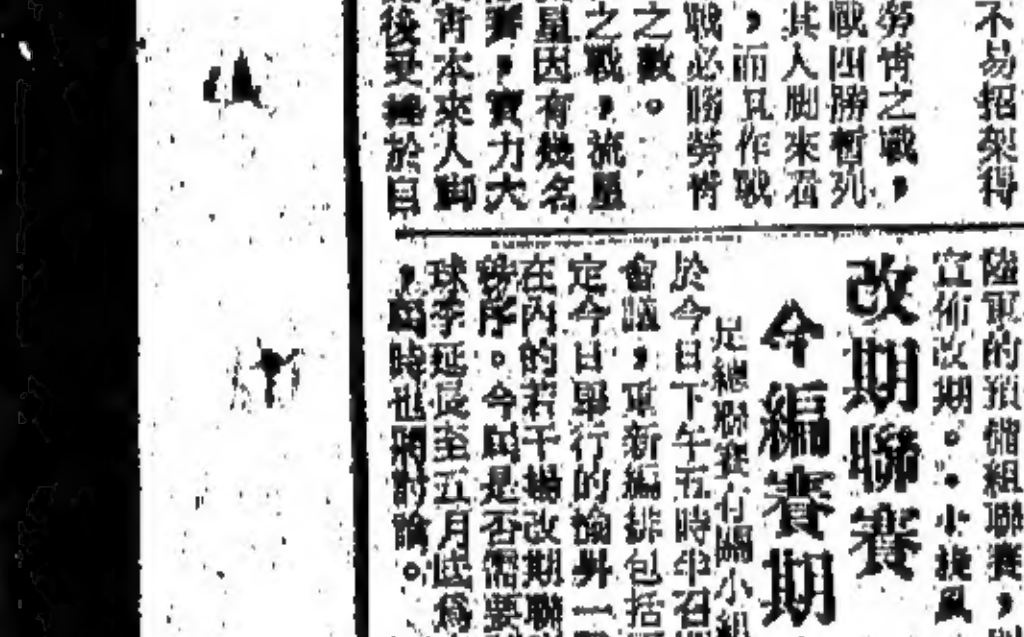 不易招架得
勞青之戰，
戰四勝暫列
其人脚來看
，而其作戰
戰必勝勞青
之數。
之戰，流星
星因有幾名
賽，實力大
青本來人脚
後受挫於自
陸軍的預備組聯賽，
宣佈改期。
改期聯賽
今編賽期
足總聯賽有關小組
於今日下午五時半召
會議，重新編排包括
定今日舉行的
在內的若干場改期聯
秩序。今屆是否需要
球季延長至五月底為
，屆時也將討論。